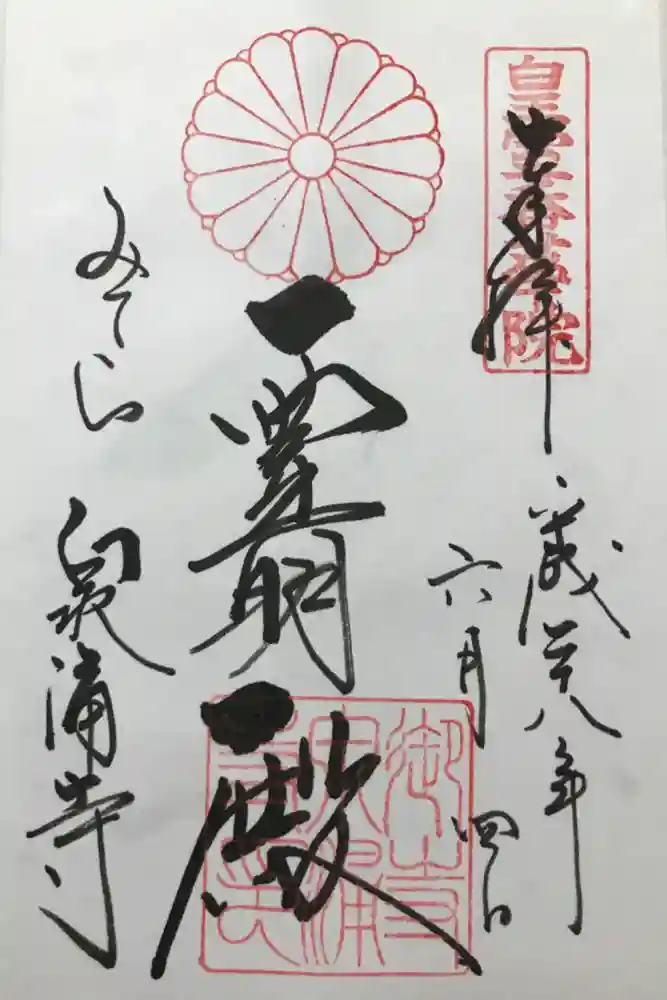 皇室香華院
奉拝
平成二十八年
六月四日
霊明殿
御寺
泉涌
寺印
みてら
泉涌寺